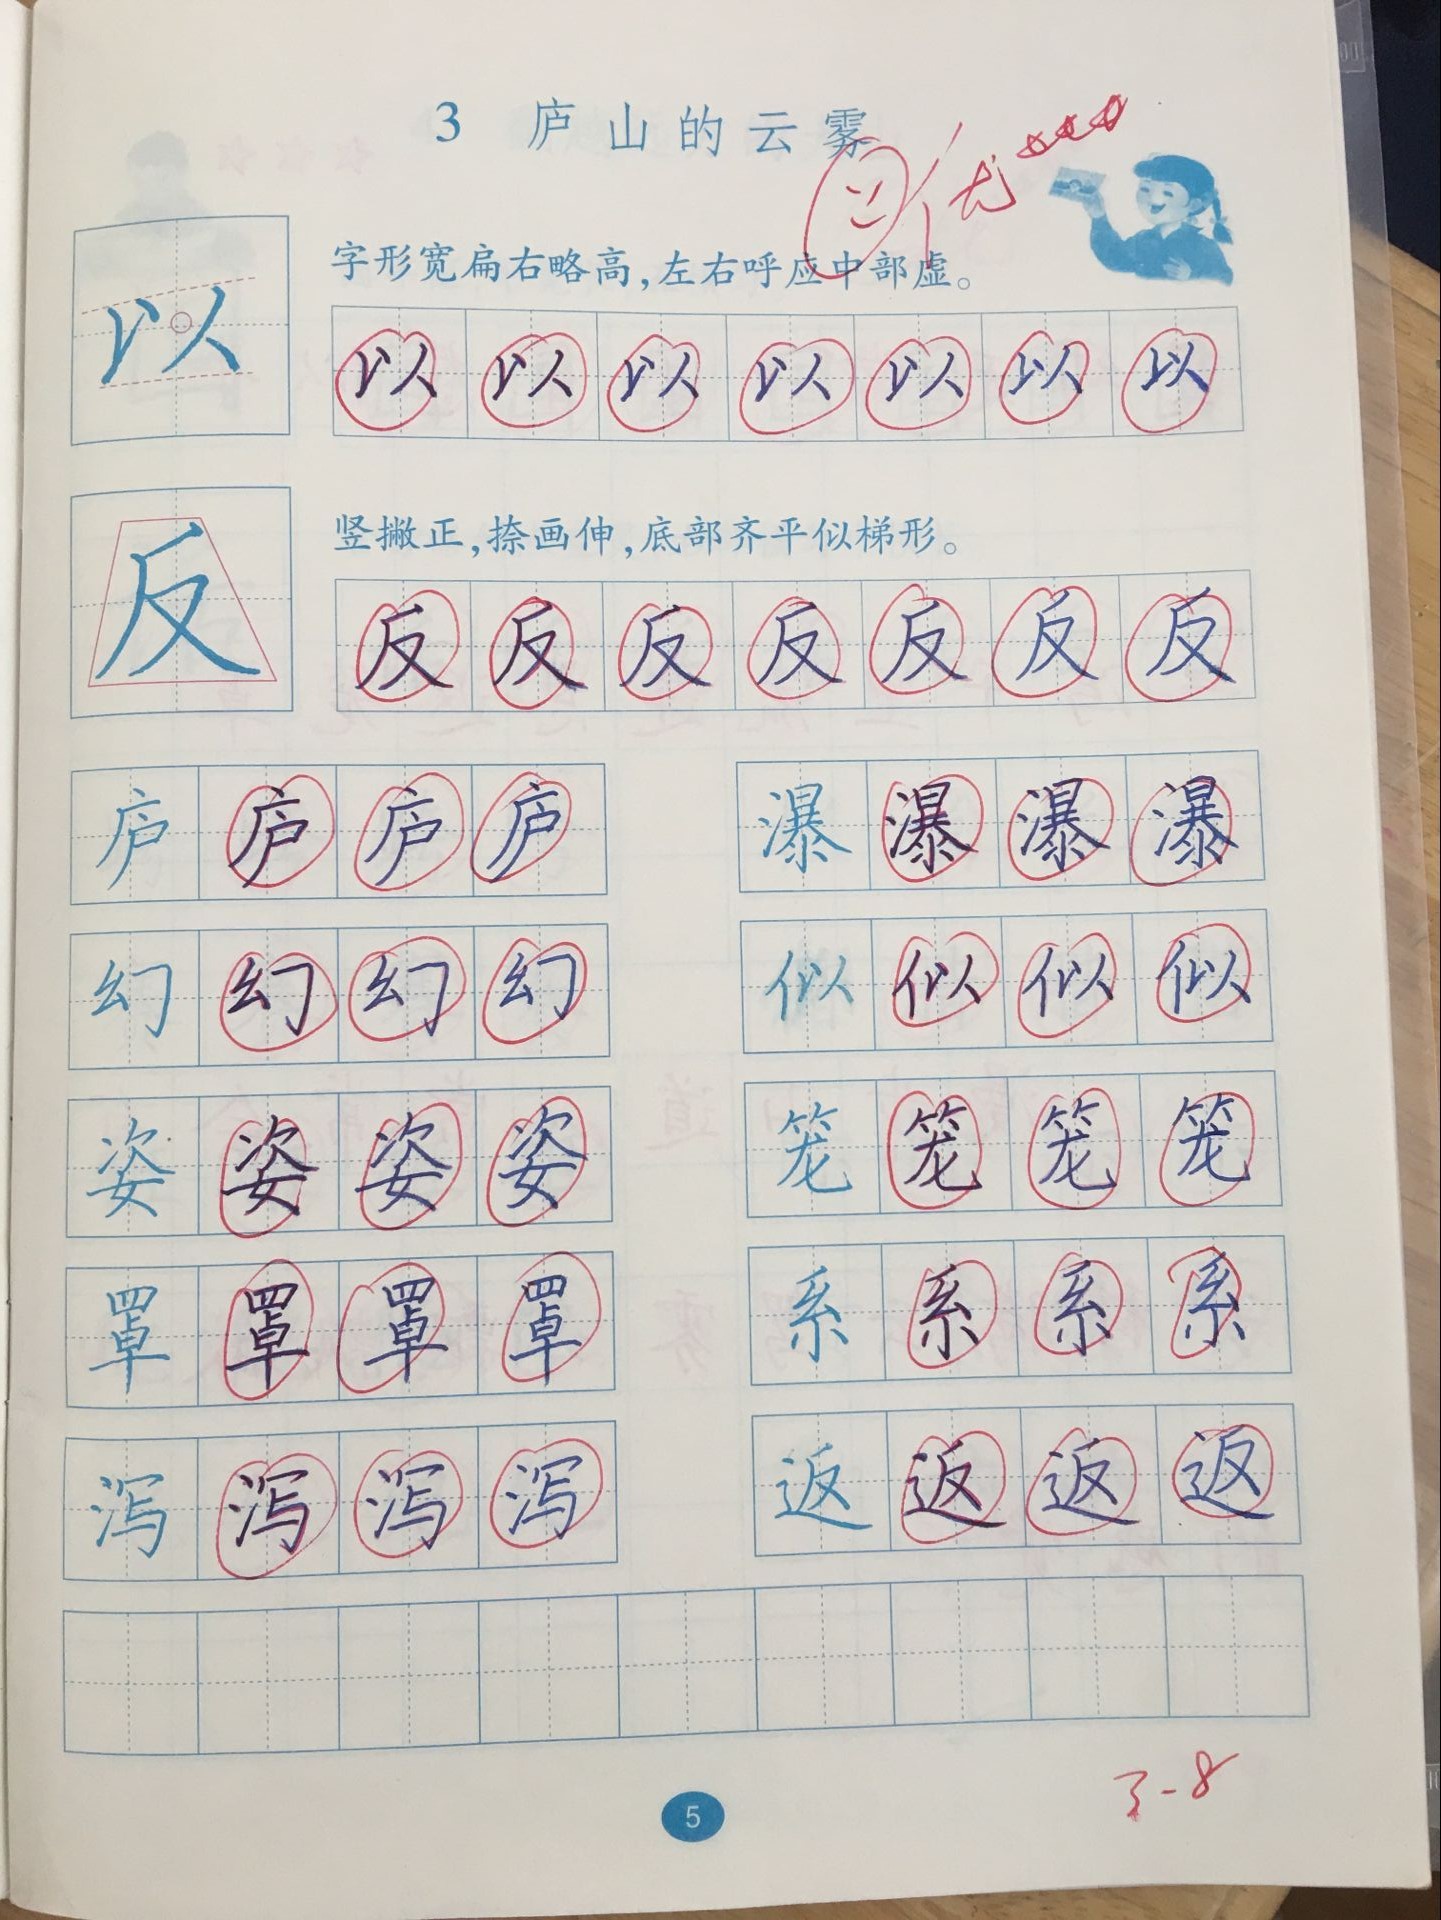 3 庐山的云雾
优
字形宽扁右略高,左右呼应中部虚。
以 以 以 以 以 以 以 以
竖撇正,捺画伸,底部齐平似梯形。
反 反 反 反 反 反 反 反
庐 庐 庐 庐 瀑 瀑 瀑 瀑
幻 幻 幻 幻 似 似 似 似
姿 姿 姿 姿 笼 笼 笼 笼
罩 罩 罩 罩 系 系 系 系
泻 泻 泻 泻 返 返 返 返
3-8
5